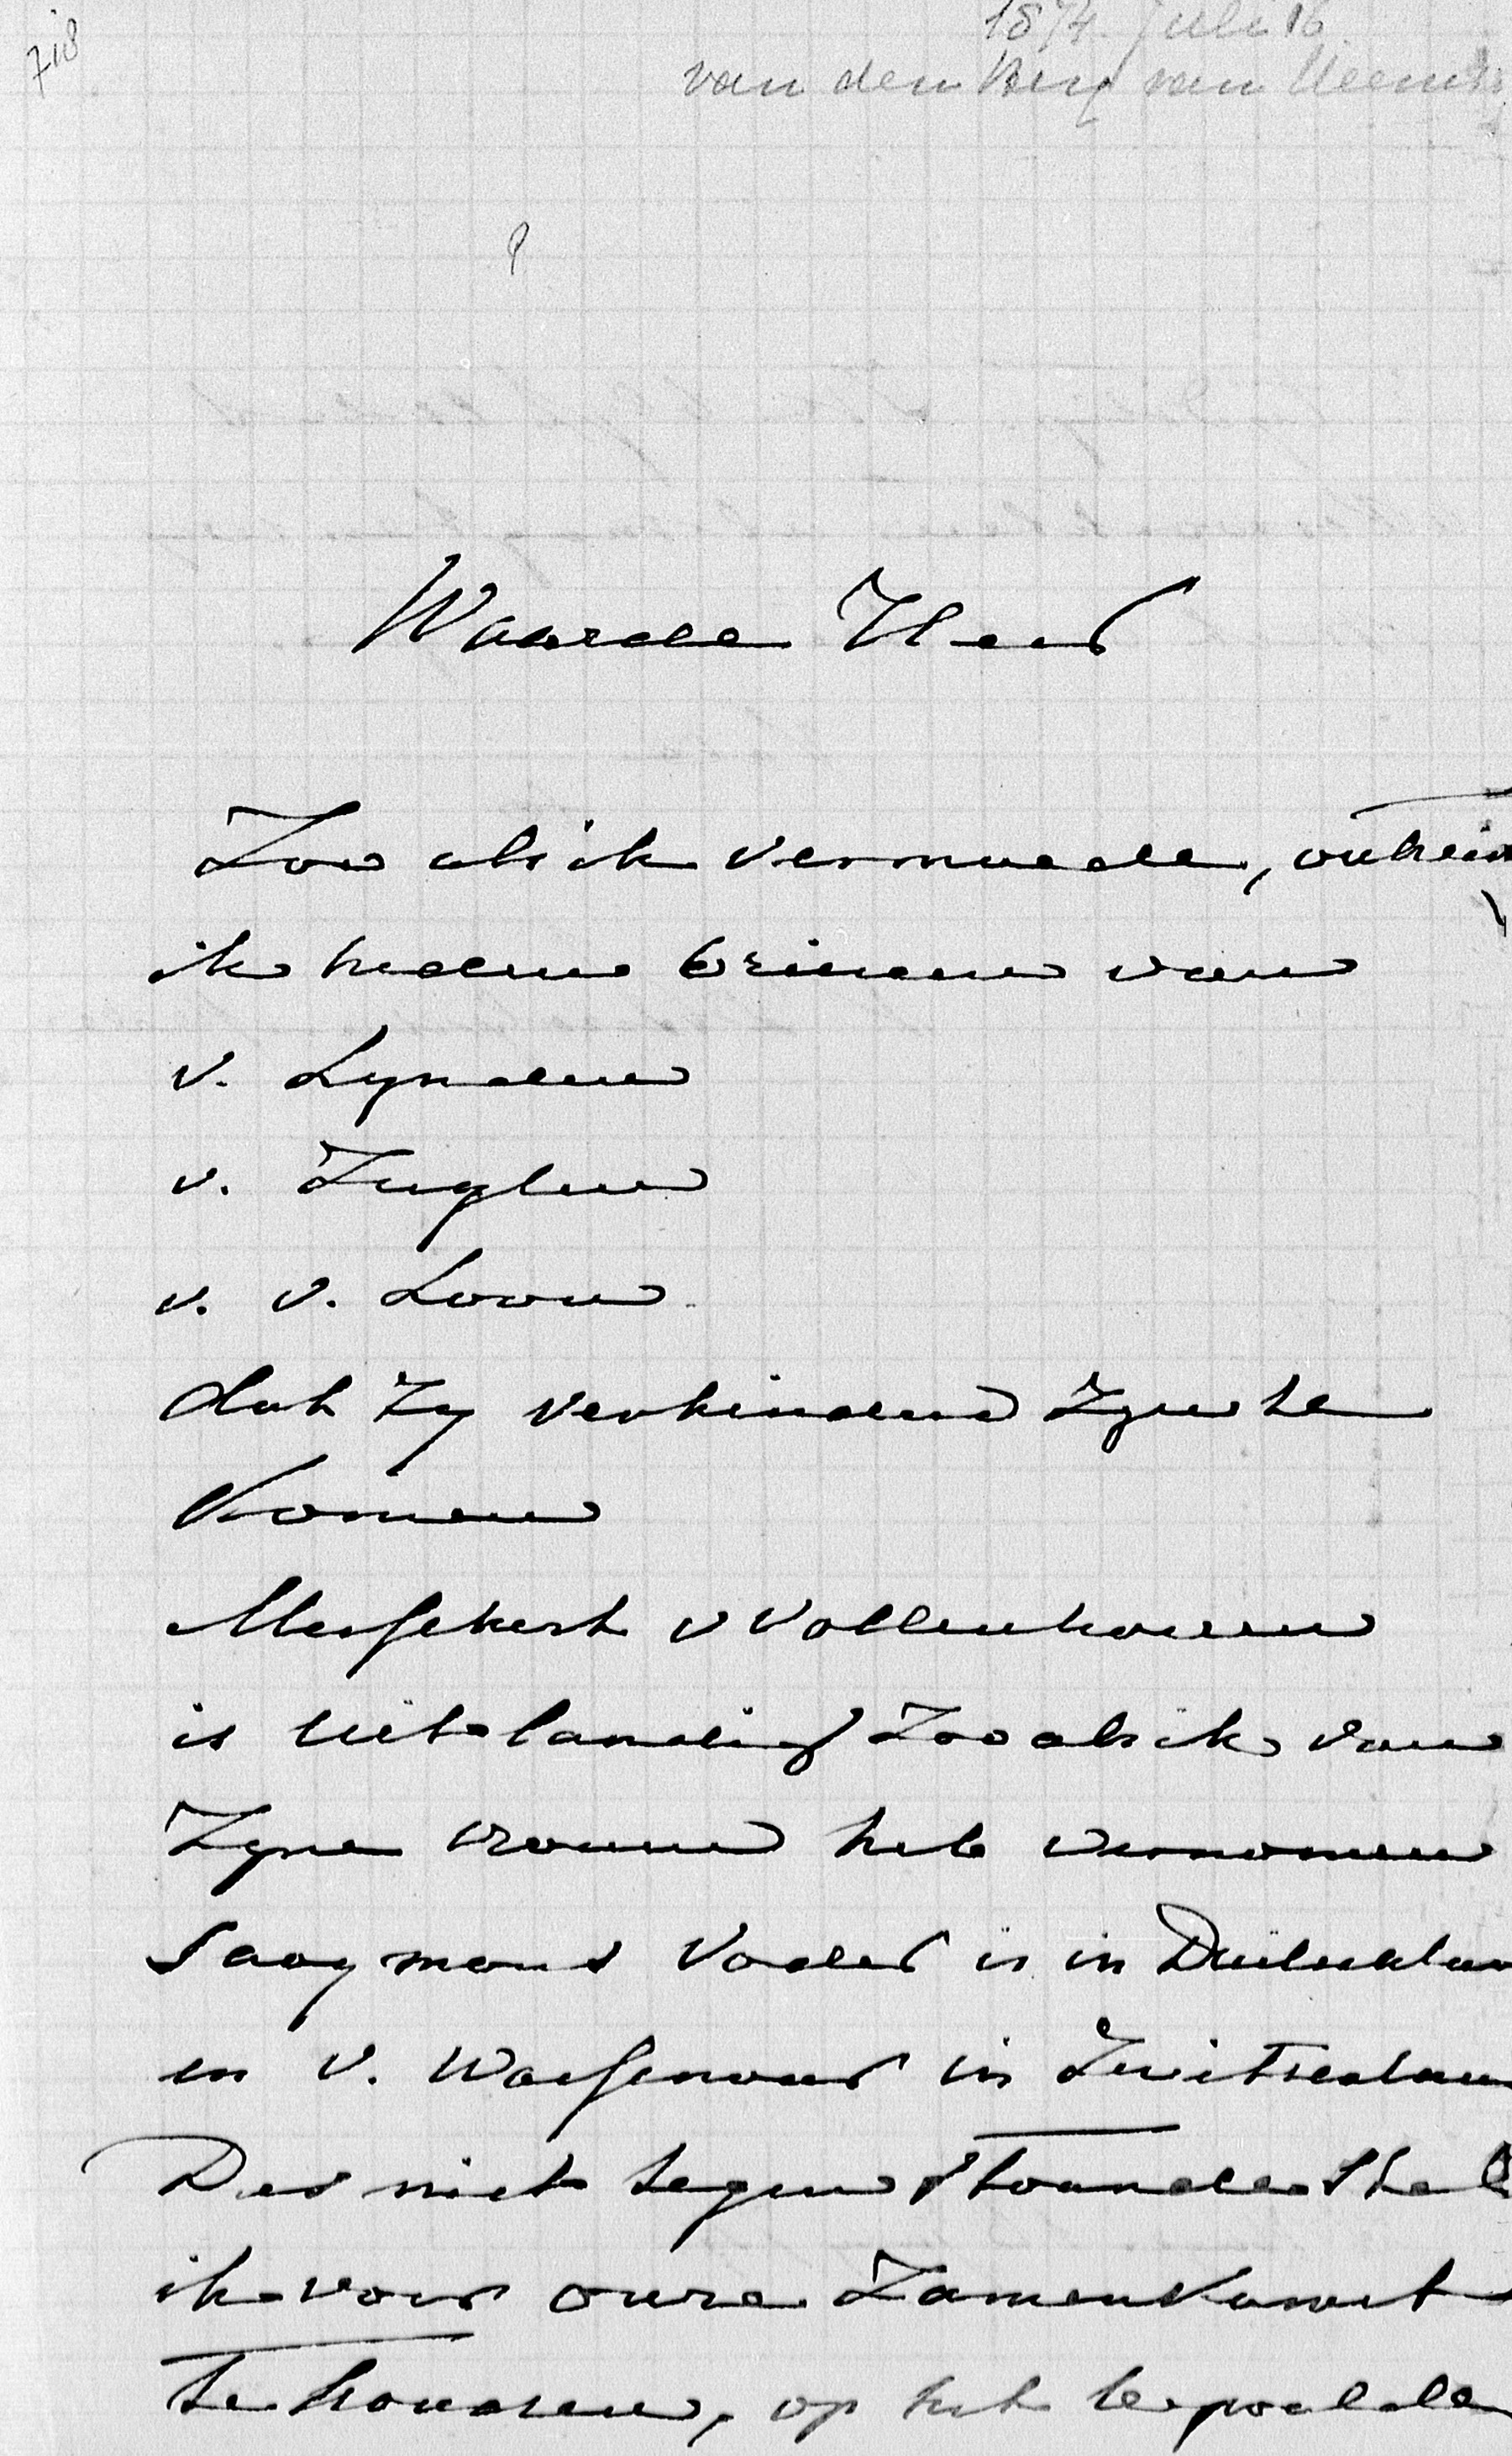 718
1874. Juli 16
van den Berg van Heemst
Waarde Heer
Zoo als ik vermoedde, ontvin
ik heden brieven van
v. Lynden
v. Zuylen
v. v. Loon
dat zy verhinderd zyn te
Komen
Messchert v Vollenhoven
is uitlandig zoo als ik van
Zyne vrouw heb vernomen
Saaymans Vader is in Duitschlan
en v. Wassenaer in Zwitserlan
Des niet tegenstaande stel
ik voor onze Zamenkomst
te houden, op het bepaalde